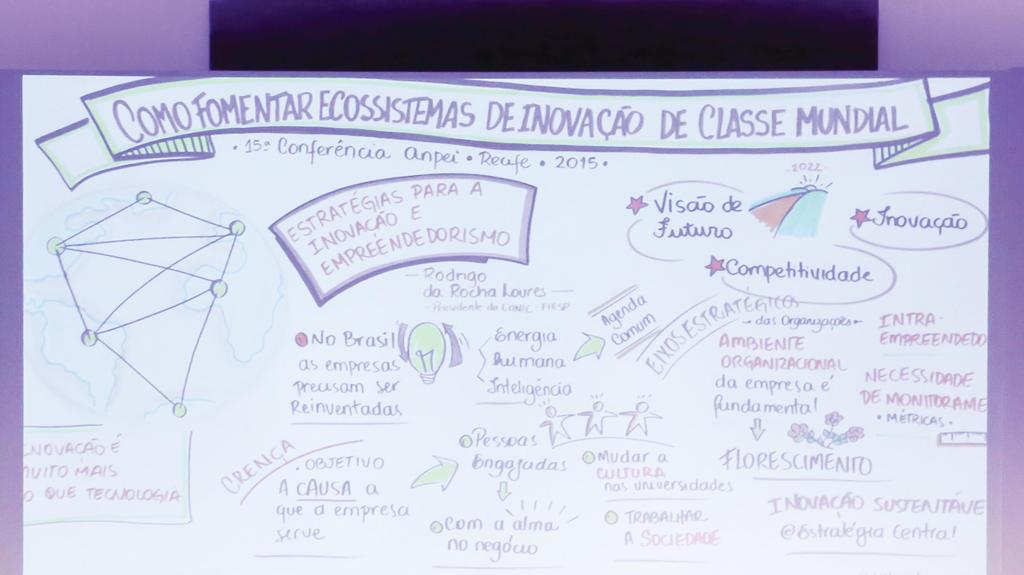 COMO FOMENTAR ECOSSISTEMAS DE INOVAÇÃO DE CLASSE MUNDIAL
• 15ª Conferência Anpei • Recife • 2015 •
ESTRATÉGIAS PARA A
INOVAÇÃO E
EMPREENDEDORISMO
— Rodrigo
da Rocha Loures —
- Presidente do CONIC - FIESP
2022
Visão de
Futuro
Inovação
Competitividade
No Brasil
as empresas
precisam ser
Reinventadas
Energia
Humana
Inteligência
Agenda
Comum
EIXOS ESTRATÉGICOS
das Organizações
AMBIENTE
ORGANIZACIONAL
da empresa é
fundamental
FLORESCIMENTO
INTRA-
EMPREENDEDO
NECESSIDADE
DE MONITORAME
• MÉTRICAS •
NOVAÇÃO É
UITO MAIS
O QUE TECNOLOGIA
CRENÇA
• OBJETIVO
A CAUSA a
que a empresa
serve
Pessoas
Engajadas
Com a alma
no negócio
Mudar a
CULTURA
nas universidades
TRABALHAR
A SOCIEDADE
INOVAÇÃO SUSTENTÁVE
@ Estratégia Central